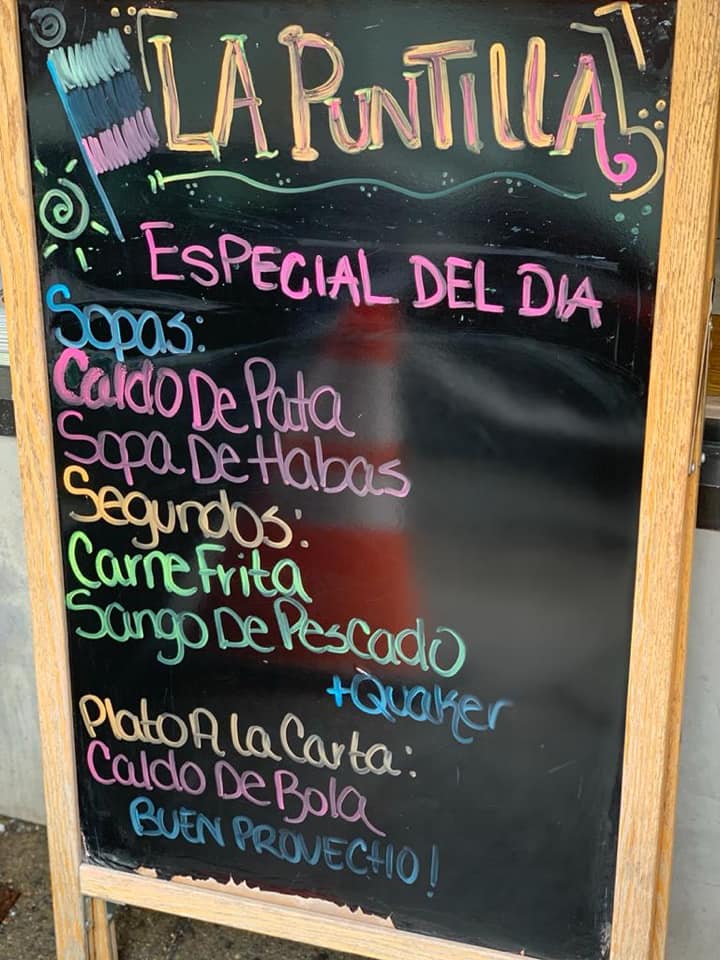 LA PUNTILLA
ESPECIAL DEL DIA
Sopas:
Caldo De Pata
Sopa De Habas
Segundos:
Carne Frita
Sango De Pescado
+Quaker
Plato A la Carta:
Caldo De Bola
BUEN PROVECHO!